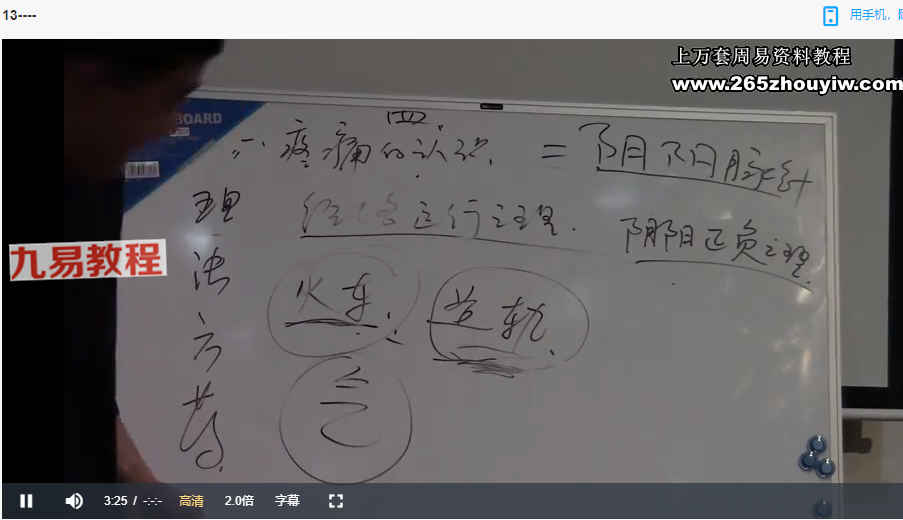 13----
用手机,
上万套周易资料教程
www.265zhouyiw.com
BOARD
四、
二、疼痛的认识、 = 阴阳脉针
理法方药
经络运行之理.
阴阳正负之理
火车: 道轨、
气
九易教程
3:25 / -:-:- 高清 2.0倍 字幕